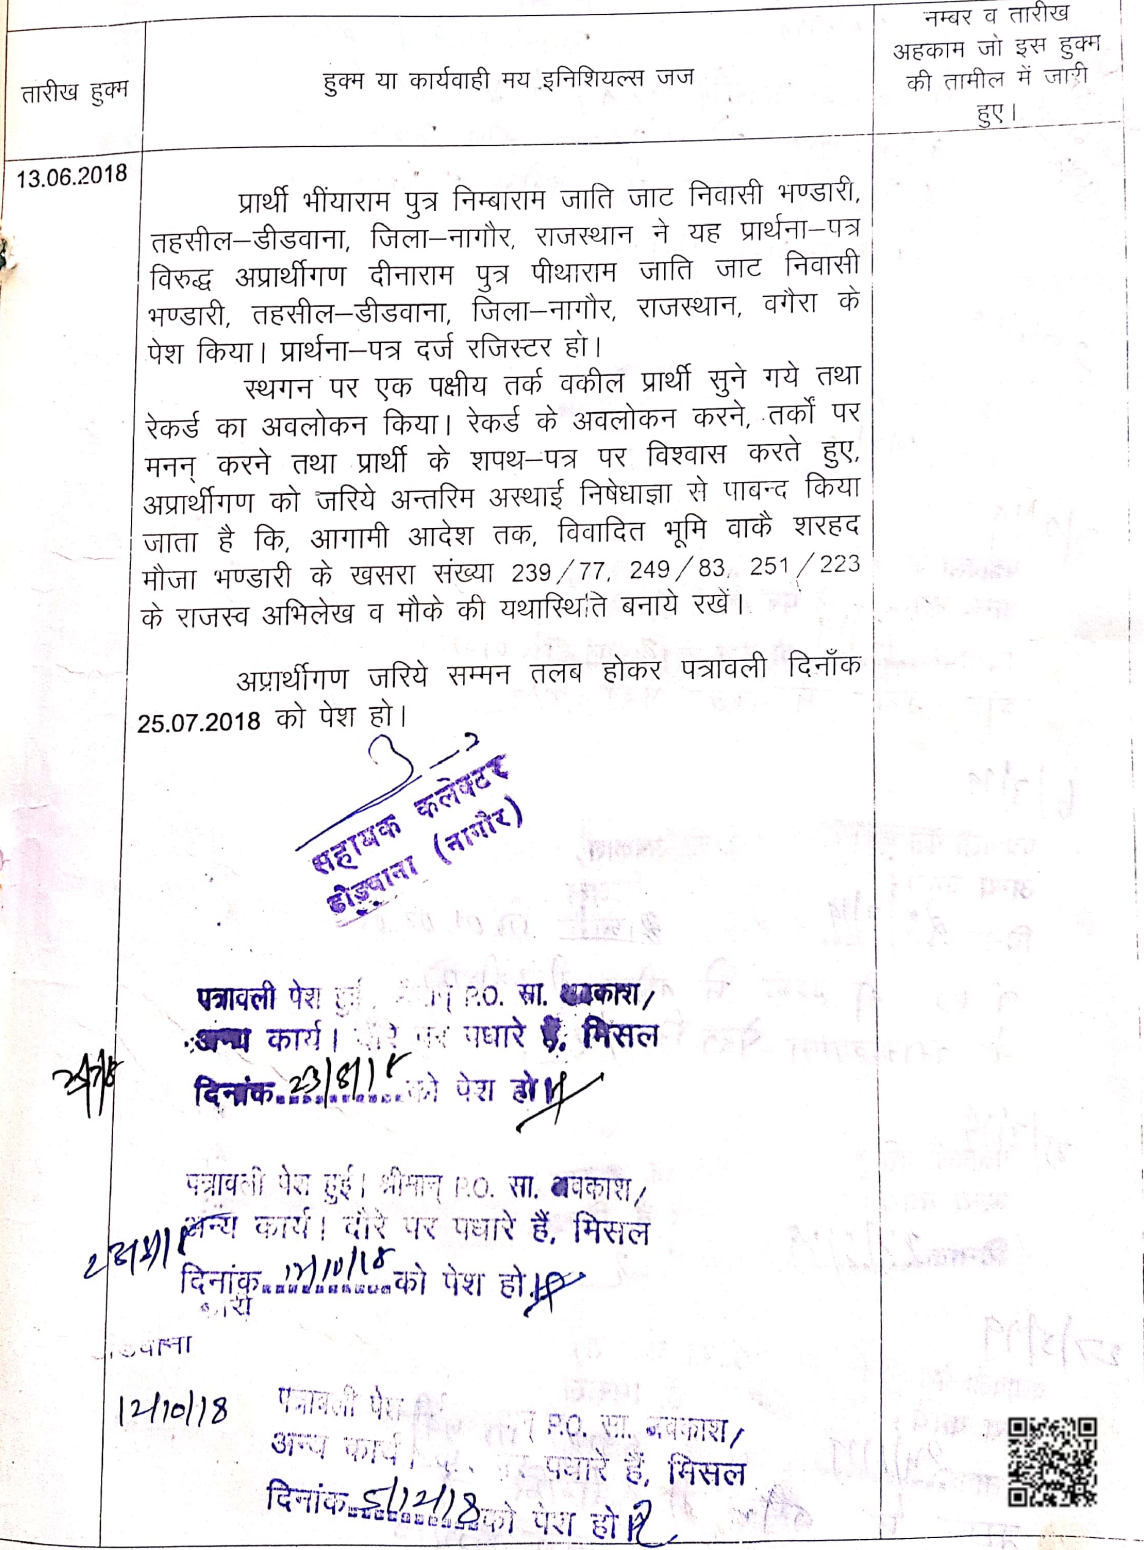 तारीख हुक्म
हुक्म या कार्यवाही मय इनिशियल्स जज
नम्बर व तारीख
अहकाम जो इस हुक्म
की तामील में जारी
हुए।
13.06.2018
प्रार्थी भींयाराम पुत्र निम्बाराम जाति जाट निवासी भण्डारी,
तहसील–डीडवाना, जिला–नागौर, राजस्थान ने यह प्रार्थना–पत्र
विरुद्ध अप्रार्थीगण दीनाराम पुत्र पीथाराम जाति जाट निवासी
भण्डारी, तहसील–डीडवाना, जिला–नागौर, राजस्थान, वगैरा के
पेश किया। प्रार्थना–पत्र दर्ज रजिस्टर हो।
स्थगन पर एक पक्षीय तर्क वकील प्रार्थी सुने गये तथा
रेकर्ड का अवलोकन किया। रेकर्ड के अवलोकन करने, तर्कों पर
मनन् करने तथा प्रार्थी के शपथ–पत्र पर विश्वास करते हुए,
अप्रार्थीगण को जरिये अन्तरिम अस्थाई निषेधाज्ञा से पाबन्द किया
जाता है कि, आगामी आदेश तक, विवादित भूमि वाकै शरहद
मौजा भण्डारी के खसरा संख्या 239/77, 249/83, 251/223
के राजस्व अभिलेख व मौके की यथास्थिति बनाये रखें।
अप्रार्थीगण जरिये सम्मन तलब होकर पत्रावली दिनाँक
25.07.2018 को पेश हो।
सहायक कलेक्टर
डीडवाना (नागौर)
पत्रावली पेश हुई P.O. सा. अवकाश/
अन्य कार्य। दौरे पर पधारे हैं, मिसल
दिनांक 23/8/18 को पेश हो।
पत्रावली पेश हुई। श्रीमान् P.O. सा. अवकाश/
अन्य कार्य। दौरे पर पधारे हैं, मिसल
दिनांक 12/10/18 को पेश हो।
12/10/18
पत्रावली पेश P.O. सा. अवकाश/
अन्य कार्य। पर पधारे हैं, मिसल
दिनांक 5/12/18 को पेश हो।